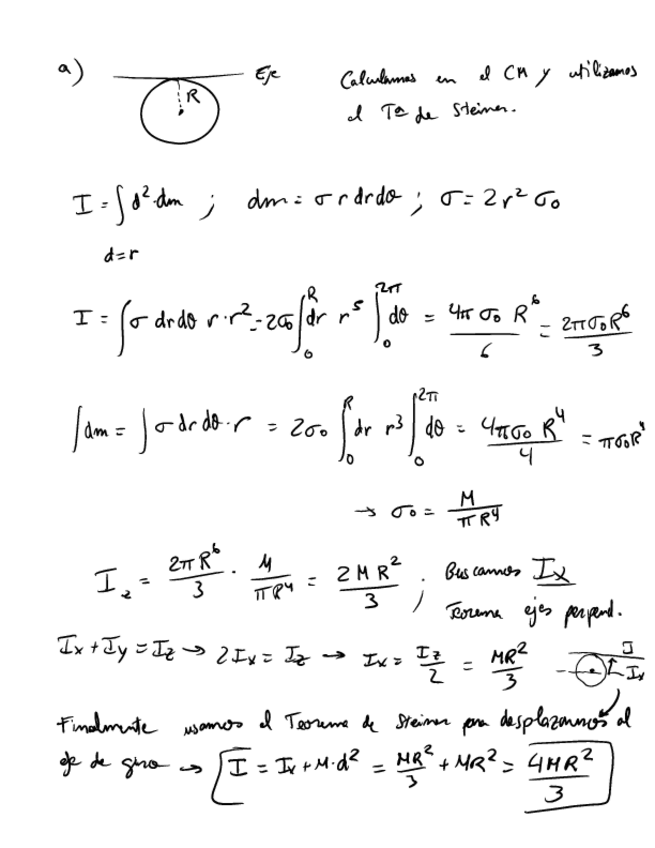 a) Eje Calculamos en el CM y utilizamos
R el Tª de Steiner.
I = ∫ d² · dm ; dm = σ r dr dθ ; σ = 2 r² σ₀
d = r
I = ∫ σ dr dθ r · r² = 2σ₀ ∫₀^R dr r⁵ ∫₀^2π dθ = 4π σ₀ R⁶ / 6 = 2πσ₀R⁶ / 3
∫ dm = ∫ σ dr dθ · r = 2σ₀ ∫₀^R dr r³ ∫₀^2π dθ = 4πσ₀ R⁴ / 4 = πσ₀R⁴
→ σ₀ = M / πR⁴
I_z = 2πR⁶ / 3 · M / πR⁴ = 2MR² / 3 ; Buscamos Ix
Teorema ejes perpend.
Ix + Iy = Iz → 2Ix = Iz → Ix = Iz / 2 = MR² / 3 I Ix
Finalmente usamos el Teorema de Steiner para desplazarnos al
eje de giro → I = Ix + M·d² = MR² / 3 + MR² = 4MR² / 3